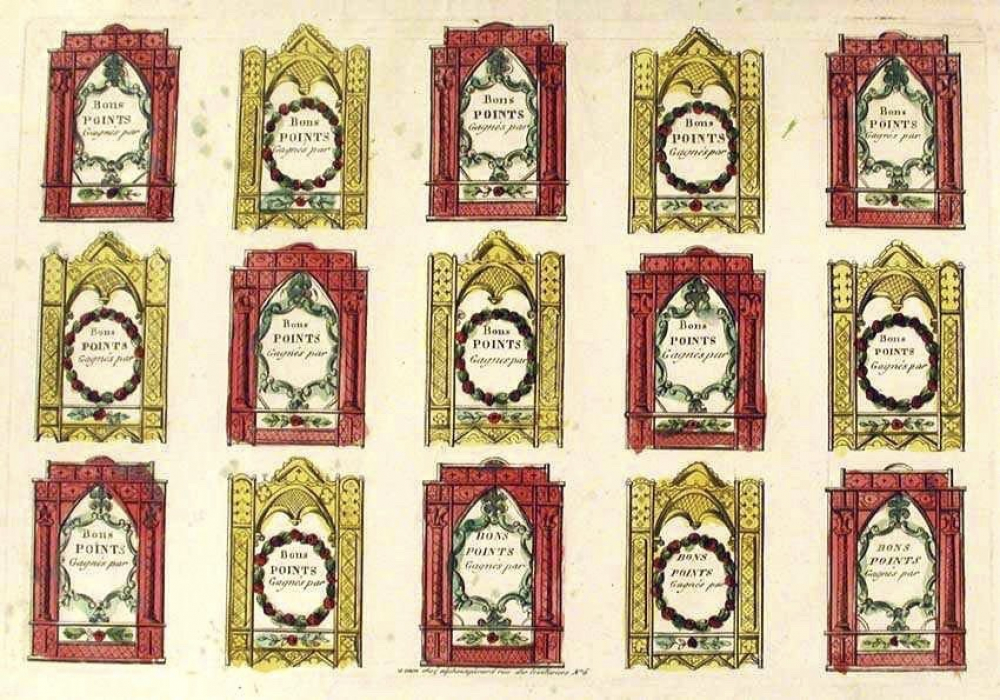 Bons
POINTS
Gagnés par
Bons
POINTS
Gagnés par
Bons
POINTS
Gagnés par
Bons
POINTS
Gagnés par
Bons
POINTS
Gagnés par
Bons
POINTS
Gagnés par
Bons
POINTS
Gagnés par
Bons
POINTS
Gagnés par
Bons
POINTS
Gagnés par
Bons
POINTS
Gagnés par
Bons
POINTS
Gagnés par
Bons
POINTS
Gagnés par
BONS
POINTS
Gagnés par
BONS
POINTS
Gagnés par
BONS
POINTS
Gagnés par
rue des N° 6